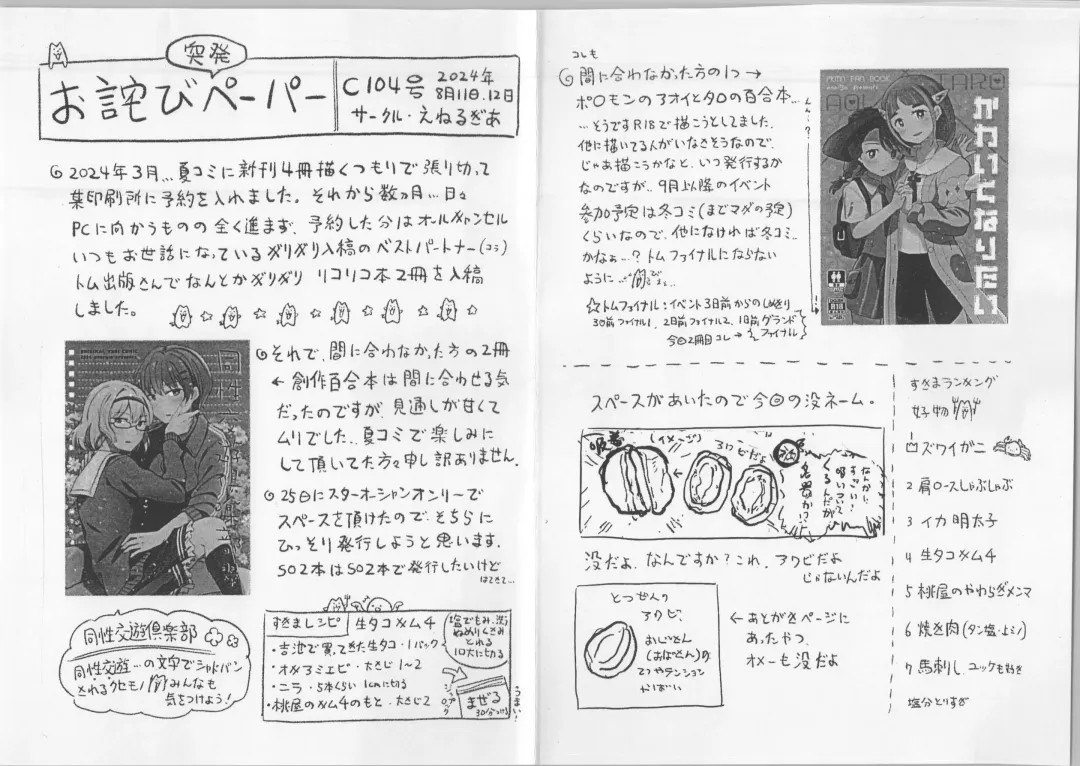 突発
お詫びペーパー
C104号 2024年
8月11日.12日
サークル・えねるぎあ
2024年3月...夏コミに新刊4冊描くつもりで張り切って
某印刷所に予約を入れました。それから数ヵ月...日々
PCに向かうものの全く進まず、予約した分はオールキャンセル
いつもお世話になっているギリギリ入稿のベストパートナー(コラ)
トム出版さんでなんとかギリギリ リコリコ本2冊を入稿
しました。
それで、間に合わなかった方の2冊
← 創作百合本は間に合わせる気
だったのですが、見通しが甘くて
ムリでした...夏コミで楽しみに
して頂いてた方々申し訳ありません。
25日にスターオーシャンオンリーで
スペースを頂けたので、そちらに
ひっそり発行しようと思います。
SO2本はSO2本で発行したいけど
はてさて...
同性交遊倶楽部
同性交遊...の文字でシャドバン
されるクセモノ みんなも
気をつけよう!
すきまレシピ 生タコキムチ
・吉池で買ってきた生タコ・1パック
・オキアミエビ・大さじ1〜2
・ニラ・5本くらい 1cmに切る
・桃屋のキムチのもと・大さじ2
塩でもみ、洗う
ぬめりくさみ
とれる
1口大に切る
ジップロック
まぜる
30分つける
うまい!
コレも
間に合わなかった方の1つ →
ポロモンのアオイとタロの百合本...
...そうですR18で描こうとしてました。
他に描いてる人がいなさそうなので、
じゃあ描こうかなと、いつ発行するか
なのですが、9月以降のイベント
参加予定は冬コミ(まだマダの予定)
くらいなので、他になければ冬コミ
かなぁ...? トムファイナルにならない
ように...
☆トムファイナル:イベント3日前からのしめきり
3日前ファイナル1, 2日前ファイナル2, 1日前グランド
ファイナル
今回2冊目コレ→
AOI
TARO
かわいくなりたい
R18
スペースがあいたので今回の没ネーム。
吸着
(イメージ)
アワビだよ
なんかに
すっごい!
吸いついて
くるんだが
名器かい?
没だよ、なんですか?これ、アワビだよ
じゃないんだよ
とつぜんの
アワビ、
おじさん
(おばさん)の
てつやテンション
かばい
← あとがきページに
あったやつ、
オメーも没だよ
すきまランキング
好物
ズワイガニ
2 肩ロースしゃぶしゃぶ
3 イカ明太子
4 生タコキムチ
5 桃屋のやわらぎメンマ
6 焼き肉(タン塩・上ミノ)
7 馬刺し、ユッケも好き
塩分とりすぎ